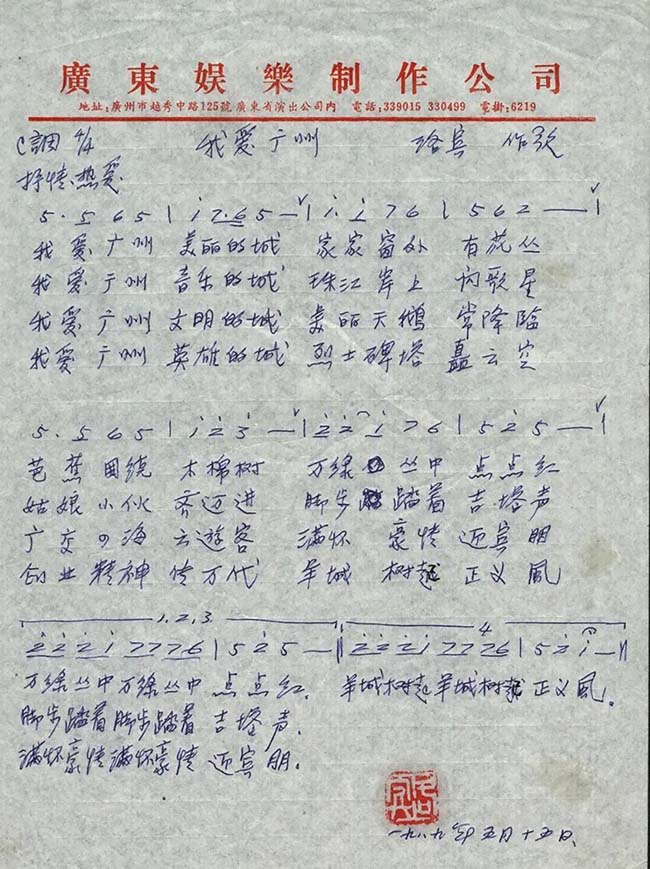 廣東娱樂制作公司
地址:廣州市越秀中路125號廣東省演出公司内 電話:339015 330499 電掛:6219
C調 4/4 我爱广州 洛宾 作歌
抒情、热爱
5. 5 6 5 | i 7.6 5 — | i. i 7 6 | 5 6 2 — |
我爱广州 美丽的城 家家窗外 有花丛
我爱广州 音乐的城 珠江岸上 闪歌星
我爱广州 文明的城 美丽天鹅 常降临
我爱广州 英雄的城 烈士碑塔 矗云空
5. 5 6 5 | i 2 3 — | 2 2 i 7 6 | 5 2 5 — |
芭蕉围绕 木棉树 万绿丛中 点点红
姑娘小伙 齐迈进 脚步踏着 吉塔声
广交四海 云遊客 满怀豪情 迎宾朋
创业精神 传万代 羊城树起 正义風
1, 2, 3. 4
2 2 2 i 7 7 7 6 | 5 2 5 — || 2 2 2 i 7 7 2 6 | 5 2 i — ||
万绿丛中万绿丛中 点点红. 羊城树起羊城树起 正义風!
脚步踏着脚步踏着 吉塔声.
满怀豪情满怀豪情 迎宾朋.
一九八九年五月十五日、